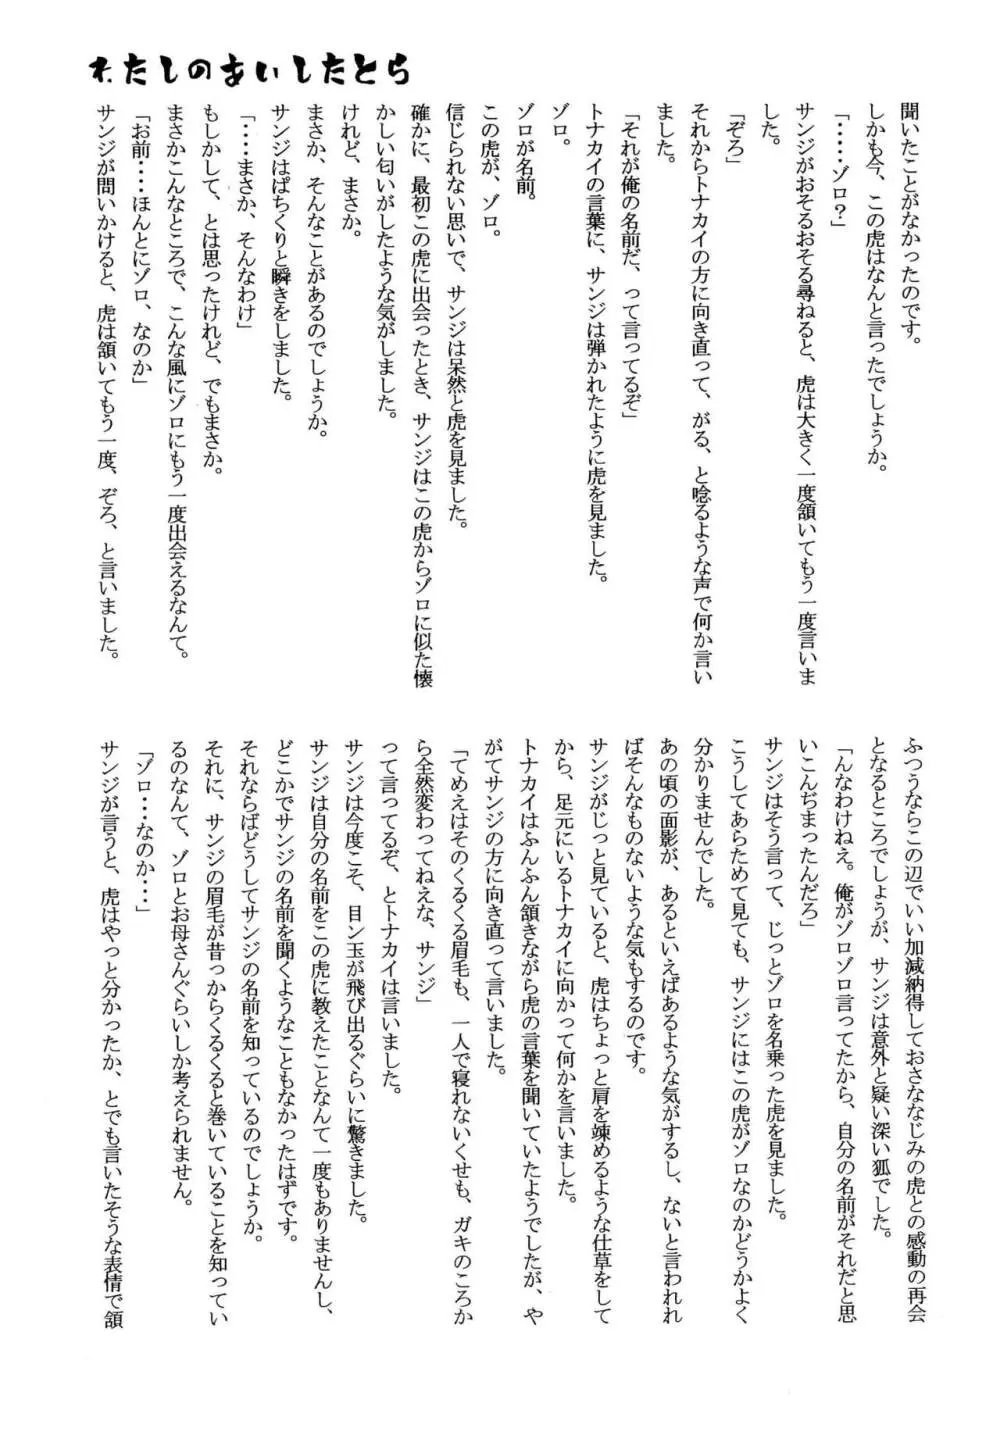 わたしのあいしたとら
聞いたことがなかったのです。
しかも今、この虎はなんと言ったでしょうか。
「・・・・ゾロ？」
サンジがおそるおそる尋ねると、虎は大きく一度頷いてもう一度言いま
した。
「ぞろ」
それからトナカイの方に向き直って、がる、と唸るような声で何か言い
ました。
「それが俺の名前だ、って言ってるぞ」
トナカイの言葉に、サンジは弾かれたように虎を見ました。
ゾロ。
ゾロが名前。
この虎が、ゾロ。
信じられない思いで、サンジは呆然と虎を見ました。
確かに、最初この虎に出会ったとき、サンジはこの虎からゾロに似た懐
かしい匂いがしたような気がしました。
けれど、まさか。
まさか、そんなことがあるのでしょうか。
サンジはぱちくりと瞬きをしました。
「・・・まさか、そんなわけ」
もしかして、とは思ったけれど、でもまさか。
まさかこんなところで、こんな風にゾロにもう一度出会えるなんて。
「お前・・・・ほんとにゾロ、なのか」
サンジが問いかけると、虎は頷いてもう一度、ぞろ、と言いました。
ふつうならこの辺でいい加減納得しておさななじみの虎との感動の再会
となるところでしょうが、サンジは意外と疑い深い狐でした。
「んなわけねえ。俺がゾロゾロ言ってたから、自分の名前がそれだと思
いこんぢまったんだろ」
サンジはそう言って、じっとゾロを名乗った虎を見ました。
こうしてあらためて見ても、サンジにはこの虎がゾロなのかどうかよく
分かりませんでした。
あの頃の面影が、あるといえばあるような気がするし、ないと言われれ
ばそんなものないような気もするのです。
サンジがじっと見ていると、虎はちょっと肩を竦めるような仕草をして
から、足元にいるトナカイに向かって何かを言いました。
トナカイはふんふん頷きながら虎の言葉を聞いていたようでしたが、や
がてサンジの方に向き直って言いました。
「てめえはそのくるくる眉毛も、一人で寝れないくせも、ガキのころか
ら全然変わってねえな、サンジ」
って言ってるぞ、とトナカイは言いました。
サンジは今度こそ、目ン玉が飛び出るぐらいに驚きました。
サンジは自分の名前をこの虎に教えたことなんて一度もありませんし、
どこかでサンジの名前を聞くようなこともなかったはずです。
それならばどうしてサンジの名前を知っているのでしょうか。
それに、サンジの眉毛が昔っからくるくると巻いていることを知ってい
るのなんて、ゾロとお母さんぐらいしか考えられません。
「ゾロ・・・なのか・・・」
サンジが言うと、虎はやっと分かったか、とでも言いたそうな表情で頷